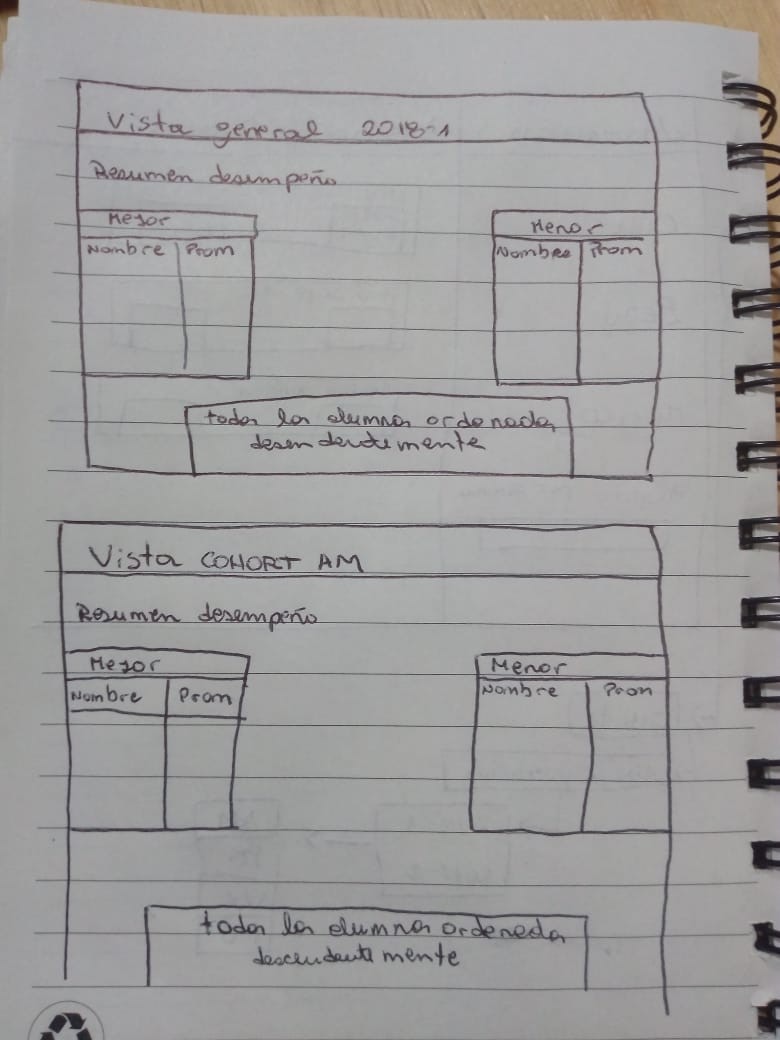 Vista general 2018-1
Resumen desempeño
Mejor
Menor
Nombre Prom
Nombre Prom
todas las alumnas ordenadas
desendentemente
Vista COHORT AM
Resumen desempeño
Mejor
Menor
Nombre Prom
Nombre Prom
todas las alumnas ordenadas
descendentemente